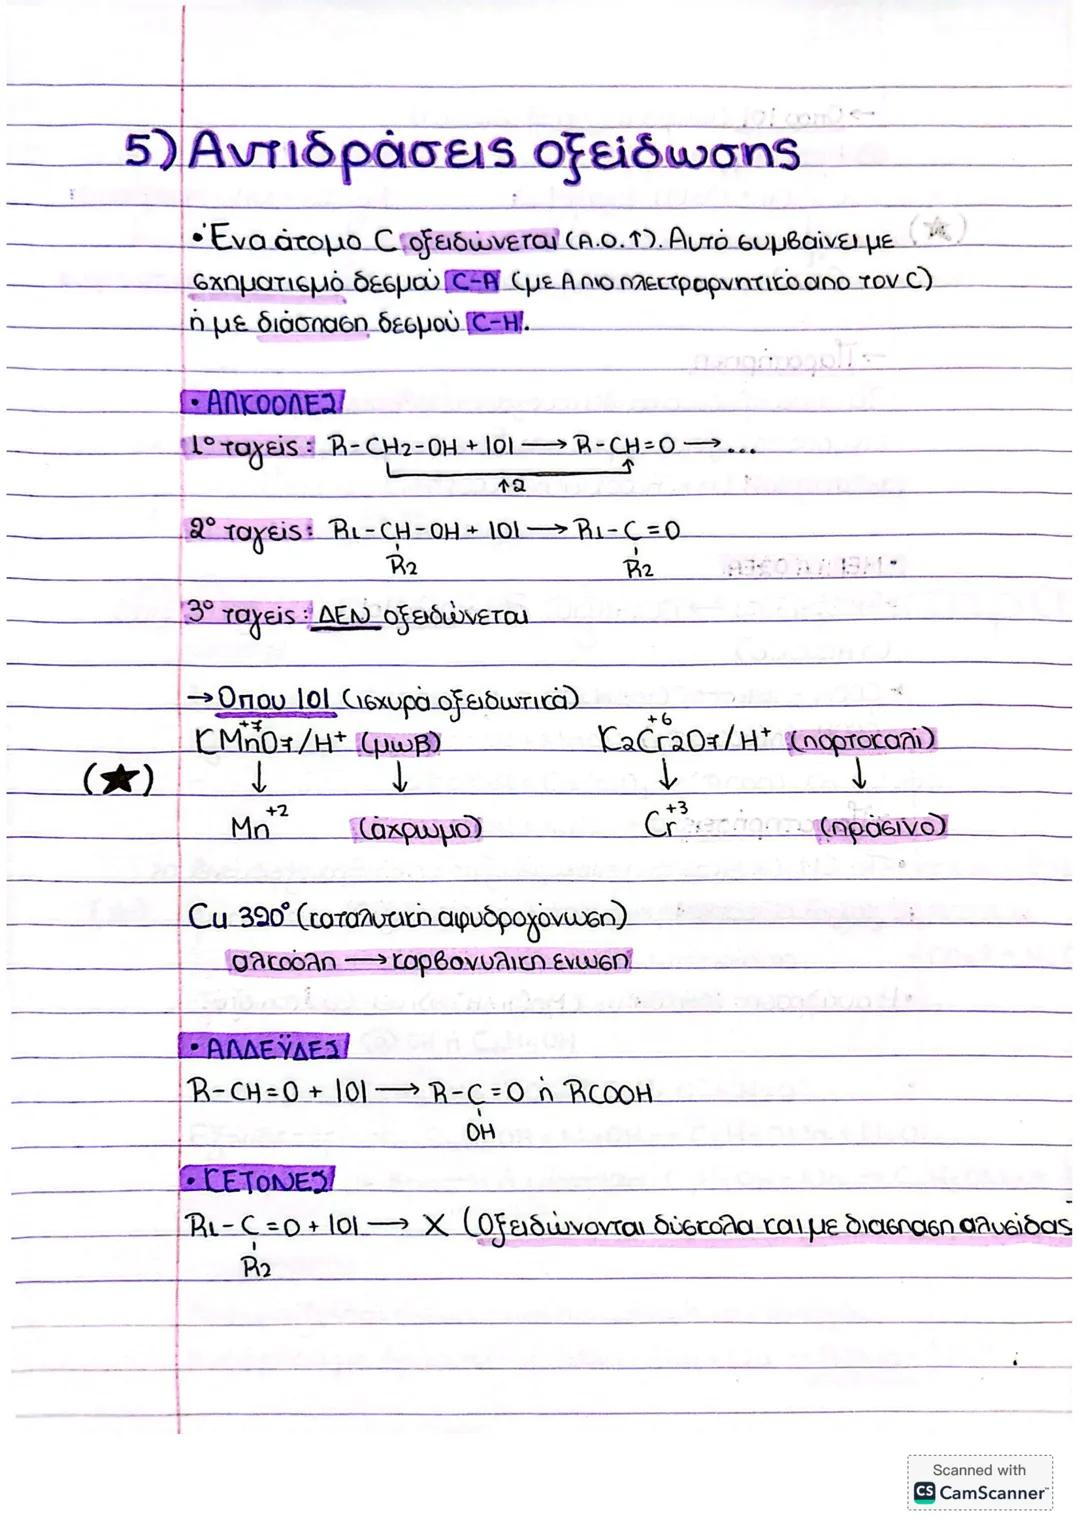 5) Αντιδράσεις οξείδωσης
• Ένα άτομο C οξειδώνεται (Α.Ο.↑). Αυτό συμβαίνει με (☆)
σχηματισμό δεσμού C-A (με Α πιο ηλεκτραρνητικό απο τον C)
ή με διάσπαση δεσμού C-H.
• ΑΛΚΟΟΛΕΣ
1° ταγείς: R-CH2-OH + |O| → R-CH=O → ...
↑2
2° ταγείς: R1-CH-OH + |O| → R1-C=O
R2 R2
3° ταγείς: ΔΕΝ οξειδώνεται
→ Οπου |O| (ισχυρά οξειδωτικά)
+7 +6
KMnO4/H+ (μωβ) K2Cr2O7/H+ (πορτοκαλί)
(★) ↓ ↓ ↓ ↓
Mn+2 (άχρωμο) Cr+3 (πράσινο)
Cu 320° (καταλυτικη αφυδρογόνωση)
αλκοόλη → καρβονυλικη ενωση
• ΑΛΔΕΫΔΕΣ
R-CH=O + |O| → R-C=O ή RCOOH
OH
• ΚΕΤΟΝΕΣ
R1-C=O + |O| → X (Οξειδώνονται δύσκολα και με διασπαση αλυσίδας
R2
Scanned with
CS CamScanner